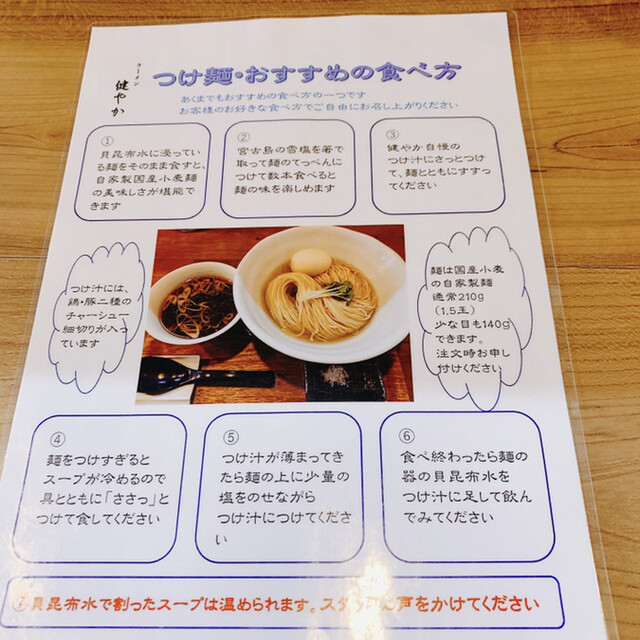 ラーメン
健やか
つけ麺・おすすめの食べ方
あくまでもおすすめの食べ方の一つです
お客様のお好きな食べ方でご自由にお召し上がりください
①
貝昆布水に浸ってい
る麺をそのまま食すと、
自家製国産小麦麺
の美味しさが堪能で
きます
②
宮古島の雪塩を箸で
取って麺のてっぺんに
つけて数本食べると
麺の味を楽しめます
③
健やか自慢の
つけ汁にさっとつけ
て、麺とともにすすっ
てください
つけ汁には、
鶏・豚二種の
チャーシュー
細切りが入っ
ています
麺は国産小麦
の自家製麺
通常210g
(1.5玉)
少な目も140g
できます。
注文時お申し
付けください
④
麺をつけすぎると
スープが冷めるので
具とともに「ささっ」と
つけて食してください
⑤
つけ汁が薄まってき
たら麺の上に少量の
塩をのせながら
つけ汁につけてくださ
い
⑥
食べ終わったら麺の
器の貝昆布水を
つけ汁に足して飲ん
でみてください
貝昆布水で割ったスープは温められます。スタ に声をかけてください